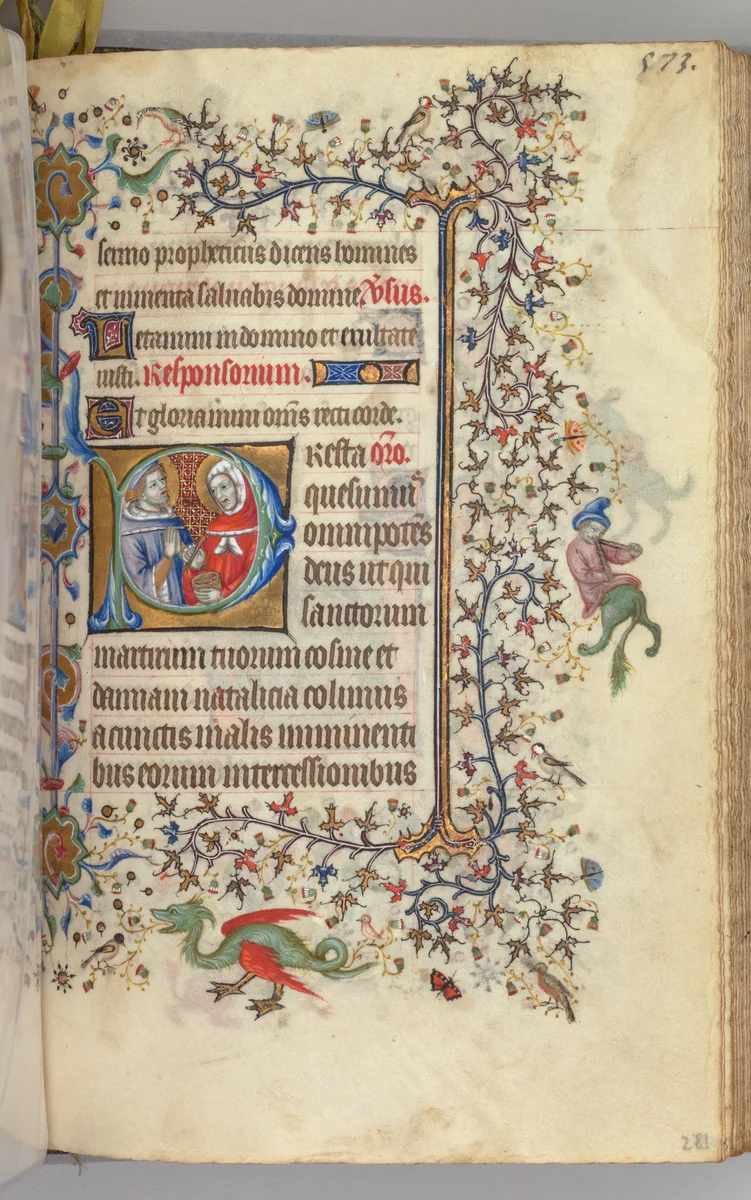 573.
sermo propheticus dicens homines
et iumenta saluabis domine v̄sus.
Letamini in domino et exultate
iusti. Responsorium.
Et gloriamini om̄s recti corde.
Presta oro.
quesumus
omnipotēs
deus ut qui
sanctorum
martirum tuorum cosme et
damiani natalicia colimus
a cunctis malis imminenti
bus eorum intercessionibus
281